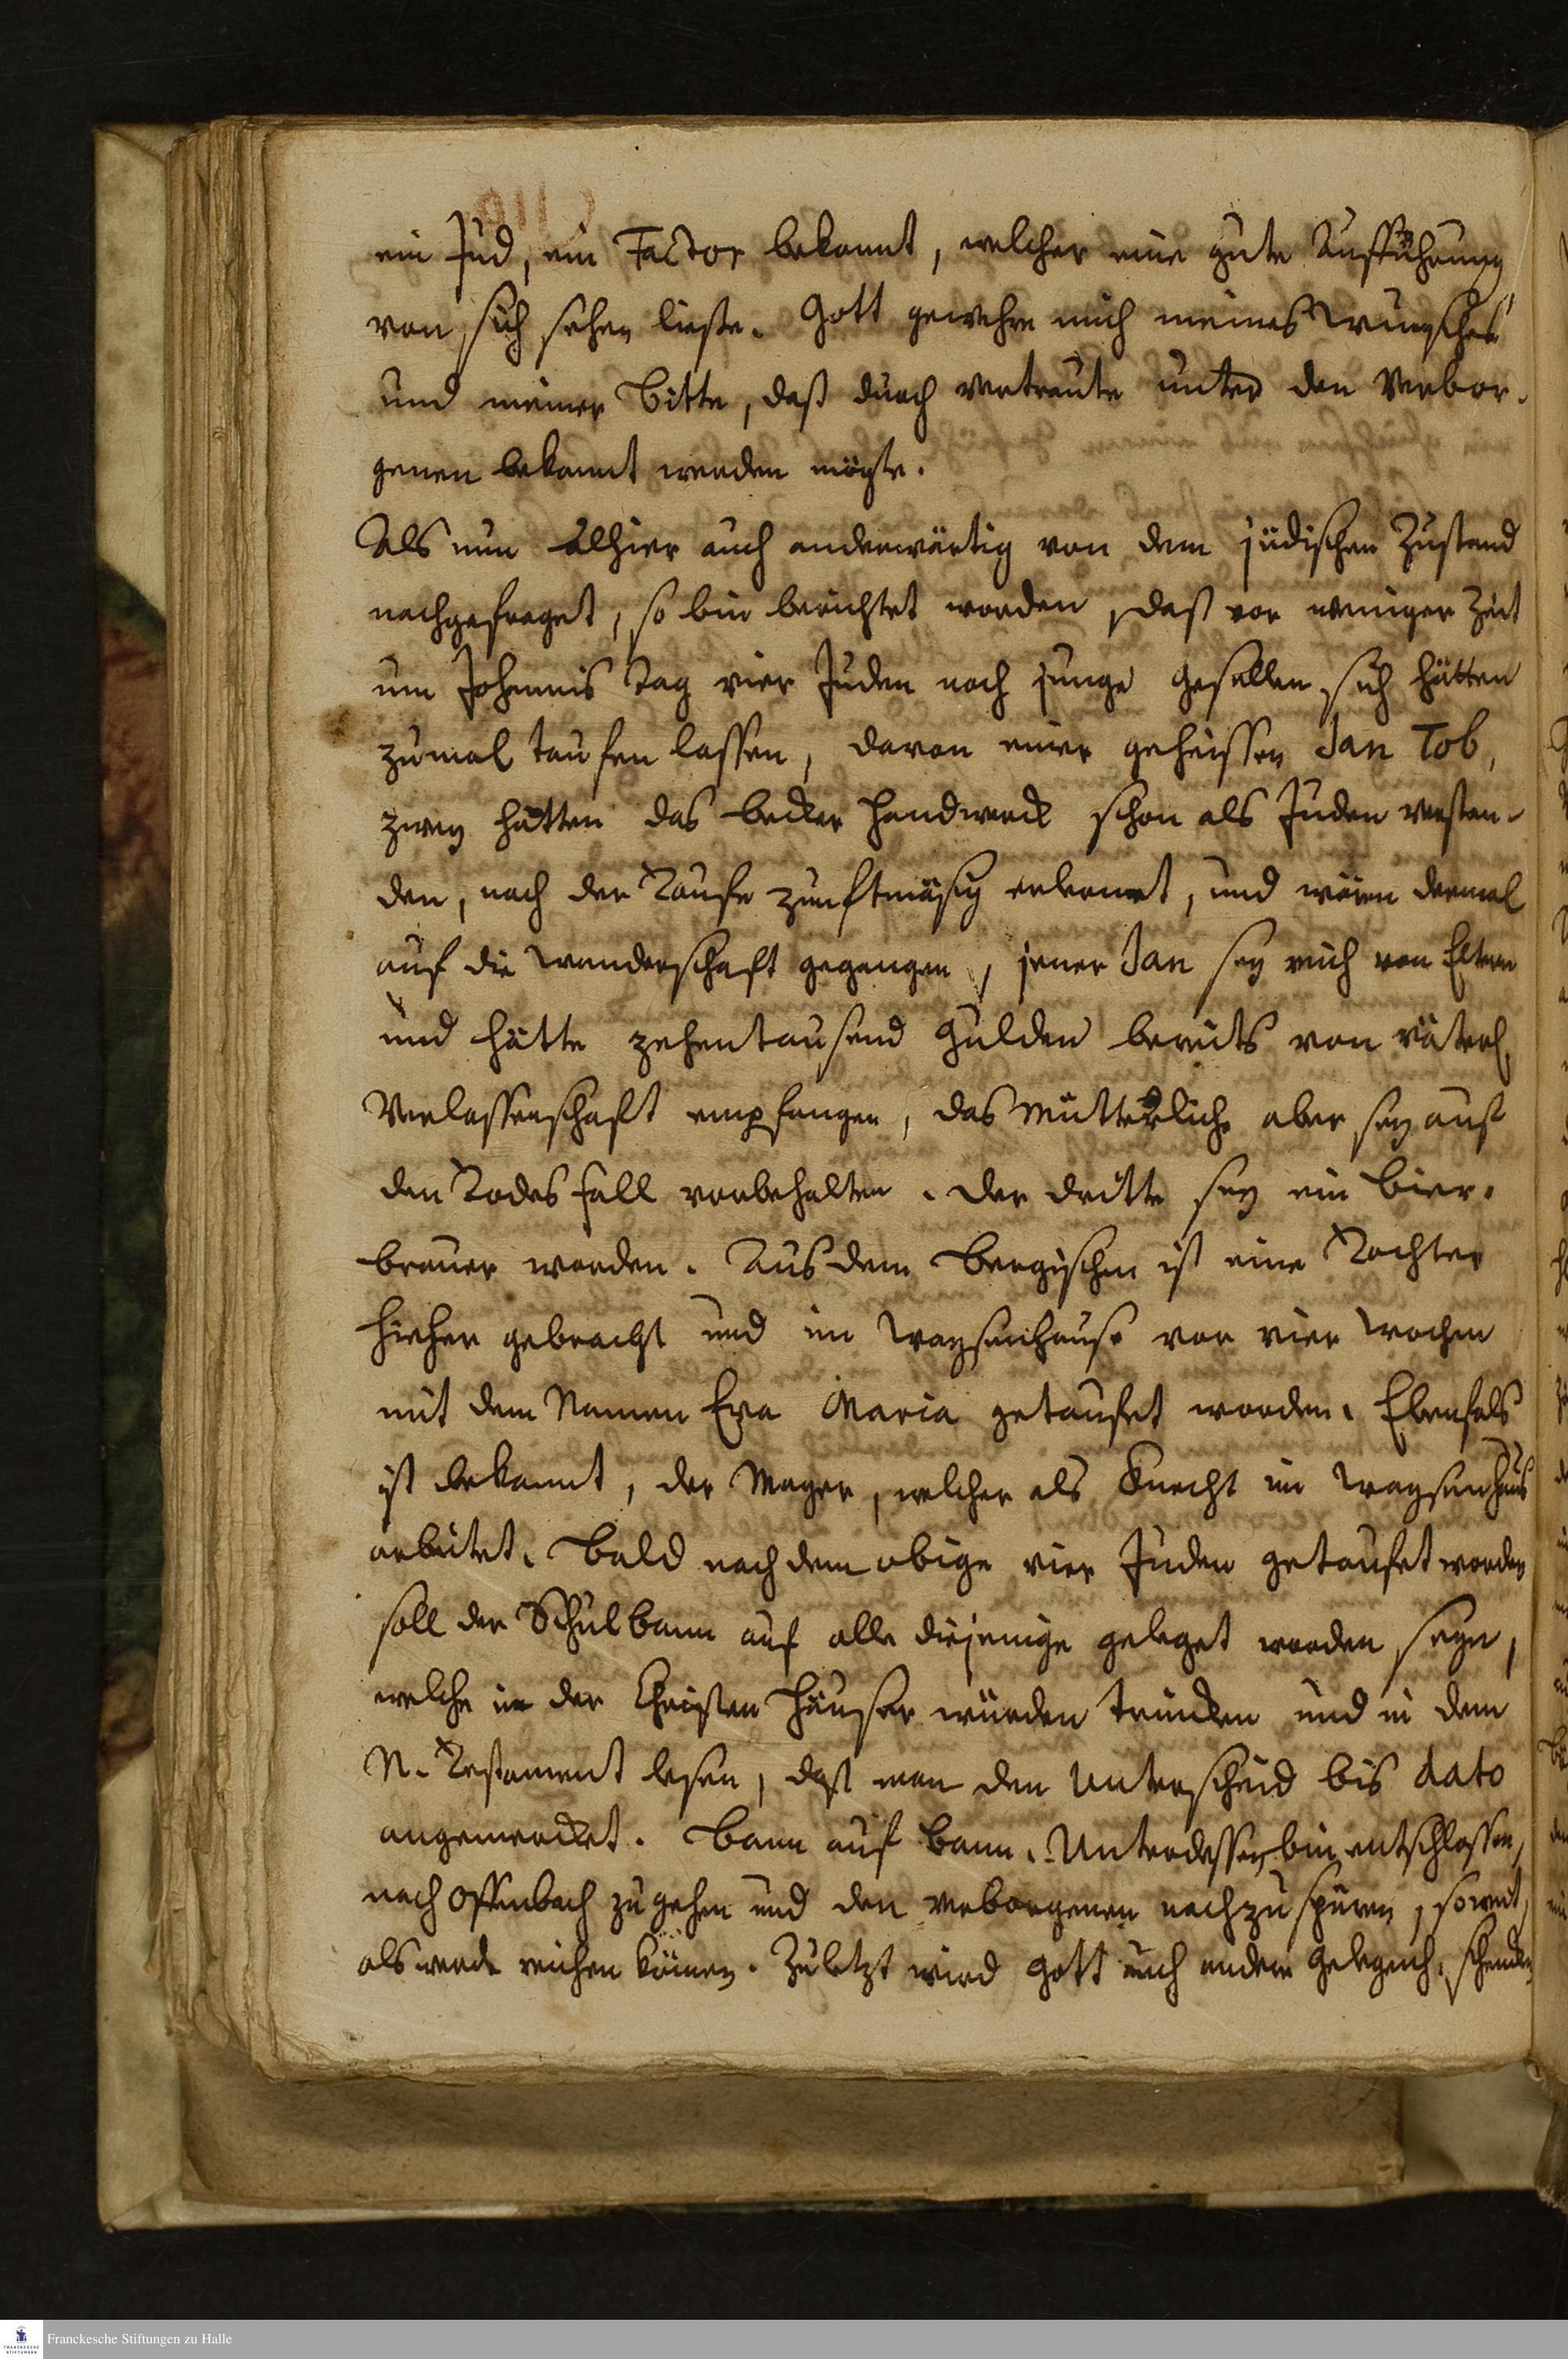 ein Jud, ein Factor bekannt, welcher eine gute Aufführung
von sich sehen liesse. Gott gewehre mich meines Wunsches
und meiner Bitte, daß durch Vertraute unter den Verbor-
genen bekannt werden mögte.
Als nun alhier auch anderwärtig von dem jüdischen Zustand
nachgefraget, so bin berichtet worden, daß vor weniger Zeit
um Johannis Tag vier Juden noch junge Gesellen sich hätten
zumal taufen lassen, davon einer geheissen Jan Tob,
zwey hätten das becker Handwerck schon als Juden verstan-
den, nach der Taufe zunftmäsig erlernet, und wären dermal
auf die Wanderschaft gegangen, jener Jan sey reich von Eltern
und hätte zehentausend Gulden bereits von väterl.
Verlassenschaft empfangen, das Mütterliche aber sey auf
den Todes fall vorbehalten. Der dritte sey ein Bier-
brauer worden. Aus dem Bergischen ist eine Tochter
hieher gebracht und im Waysenhause vor vier Wochen
mit dem Namen Eva Maria getaufet worden. Ebenfals
ist bekannt, der Mayer, welcher als Knecht im Waysenhaus
arbeitet. Bald nach dem obige vier Juden getaufet worden
soll der Schulbann auf alle diejenige geleget worden seyn,
welche in der Christen Häuser würden trincken und in dem
N. Testament lesen, daß man den Unterscheid bis dato
angemercket. Bann auf Bann. Unterdessen bin entschlossen,
nach Offenbach zu gehen und den verborgenen nachzuspüren, soweit,
als werde reichen können. Zuletzt wird Gott auch andere Gelegenh. schencken
Franckesche Stiftungen zu Halle